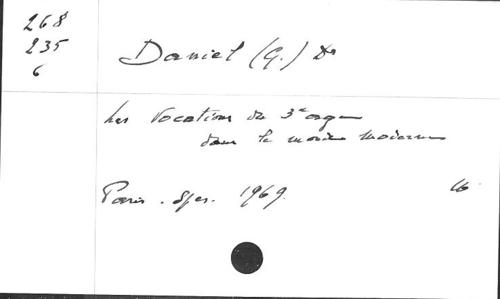 268
235
6
Daniel (G.) Dr
Les Vocations du 3e age
dans le monde moderne
Paris. Spes. 1969.
16